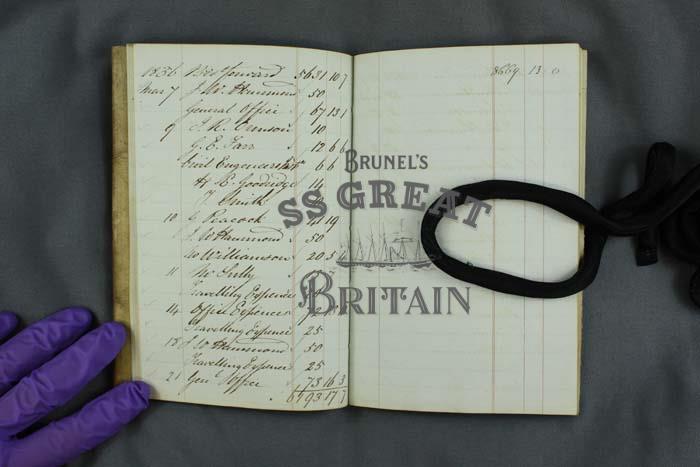 1836 Bro forward 5631 10 7
Mar 7 J. W. Hammond 50
General Office 67 13 1
9 J. R. Ormson 10
G. E. Farr 12 6 6
Civil Engineers 6 6
H. E. Goodridge 14
T. Smith
10 Peacock 19
J W Hammond 50
Williamson 20 5
11
Travelling Expence
14 Office Expences
Travelling Expence 25
18 J W Hammond 50
Travelling Expence 25
21 Genl Office 73 16 3
6793 17 7
8669 13 0
BRUNEL'S
SS GREAT
BRITAIN